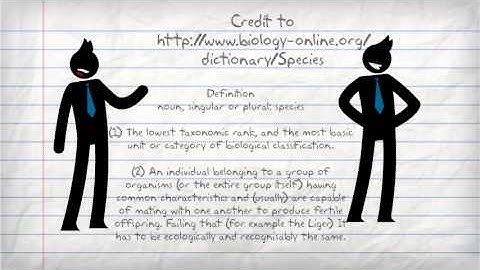 Credit to
http://www.biology-online.org/
dictionary/Species
Definition
noun, singular or plural: species
(1) The lowest taxonomic rank, and the most basic
unit or category of biological classification.
(2) An individual belonging to a group of
organisms (or the entire group itself) having
common characteristics and (usually) are capable
of mating with one another to produce fertile
offspring. Failing that (for example the Liger) It
has to be ecologically and recognisably the same.